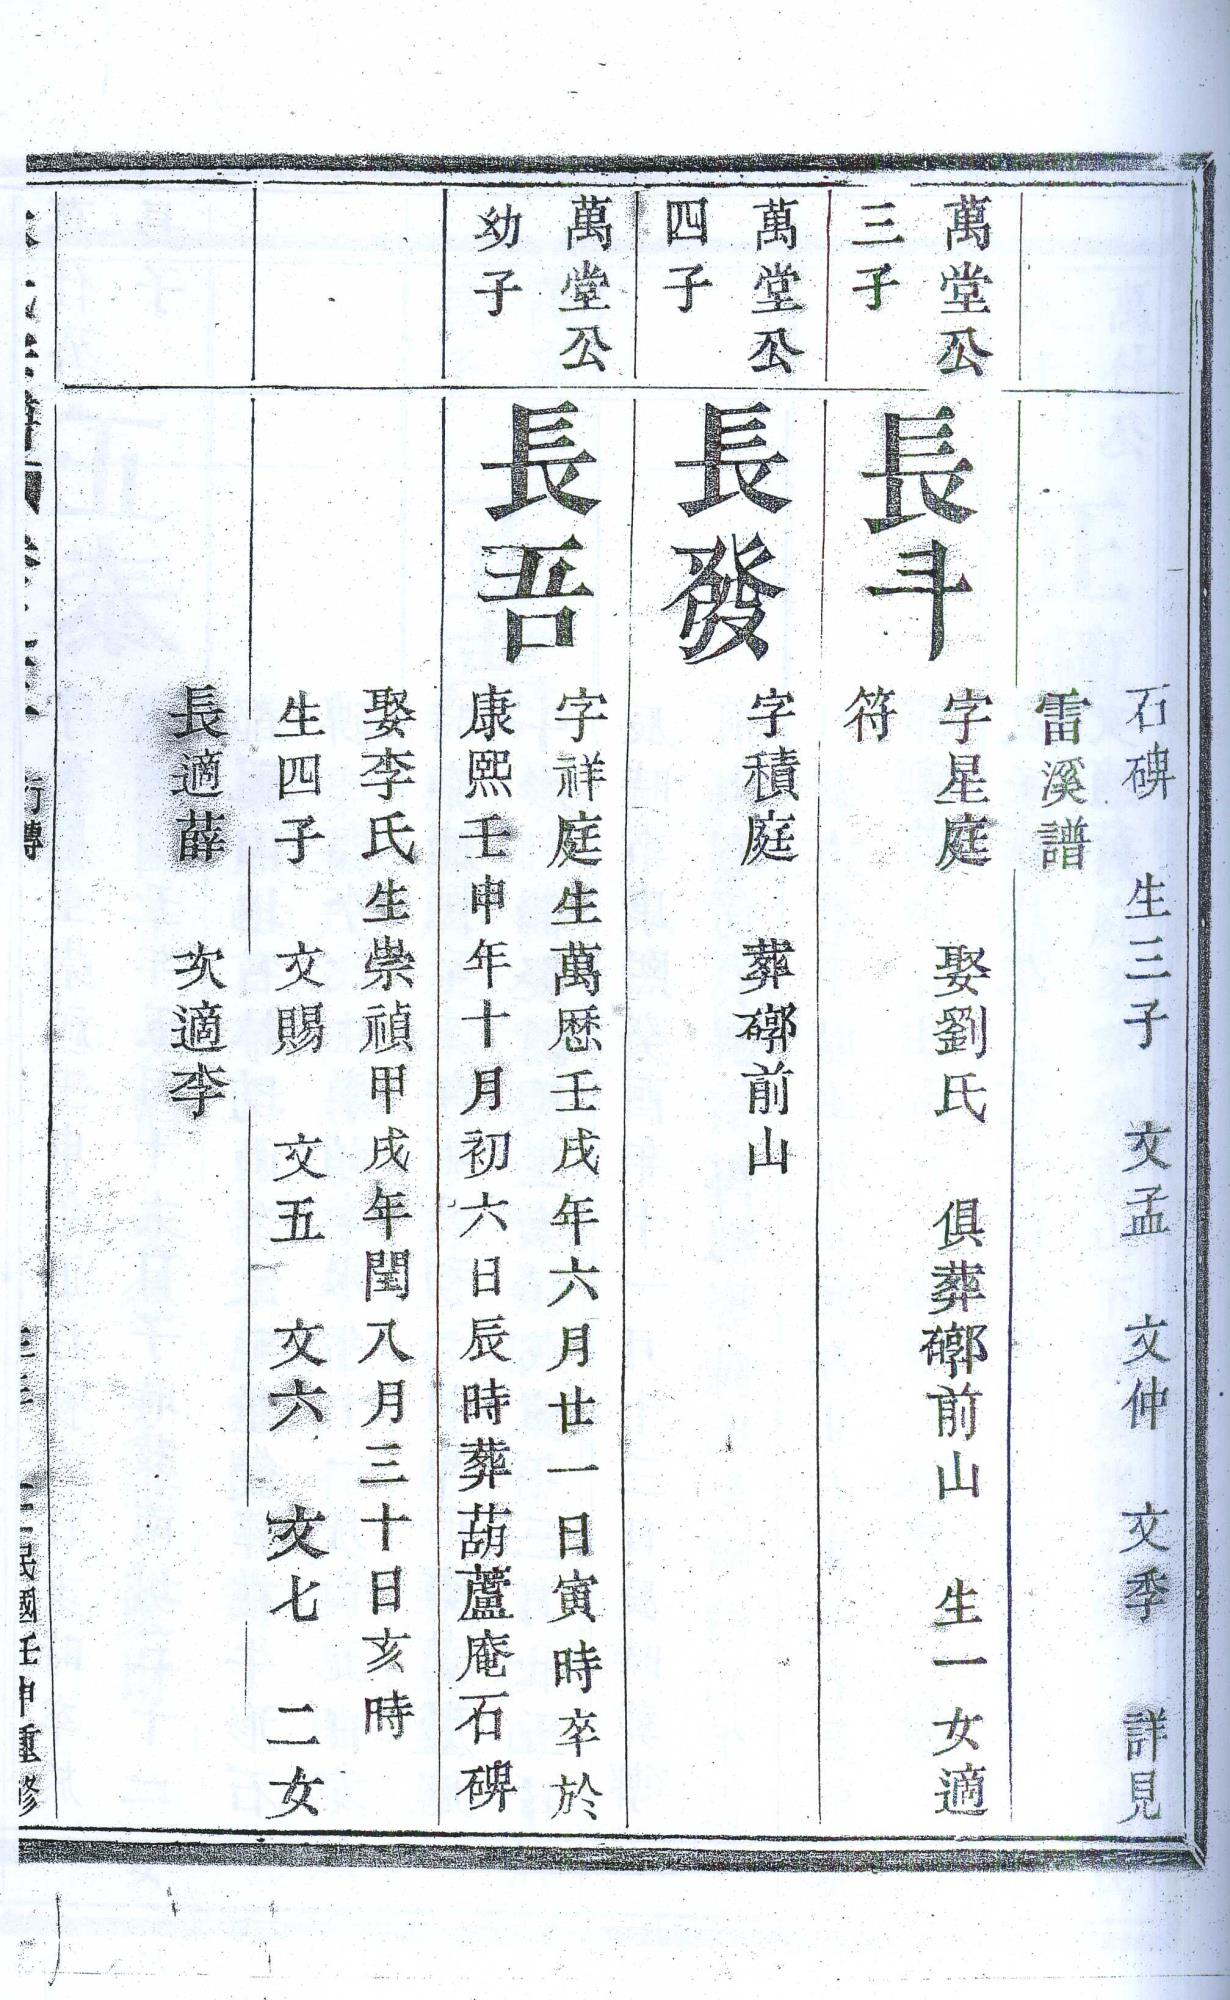 石碑　生三子　文孟　文仲　文季　詳見
雷溪譜
萬堂公
三子
長斗
字星庭　娶劉氏　俱葬𥕏前山　生一女適
符
萬堂公
四子
長發
字積庭　葬𥕏前山
萬堂公
幼子
長吾
字祥庭生萬歷壬戌年六月廿一日寅時卒於
康熙壬申年十月初六日辰時葬葫蘆庵石碑
娶李氏生崇禎甲戌年閏八月三十日亥時
生四子　文賜　文五　文六　文七　二女
長適薛　次適李
民國壬申重修